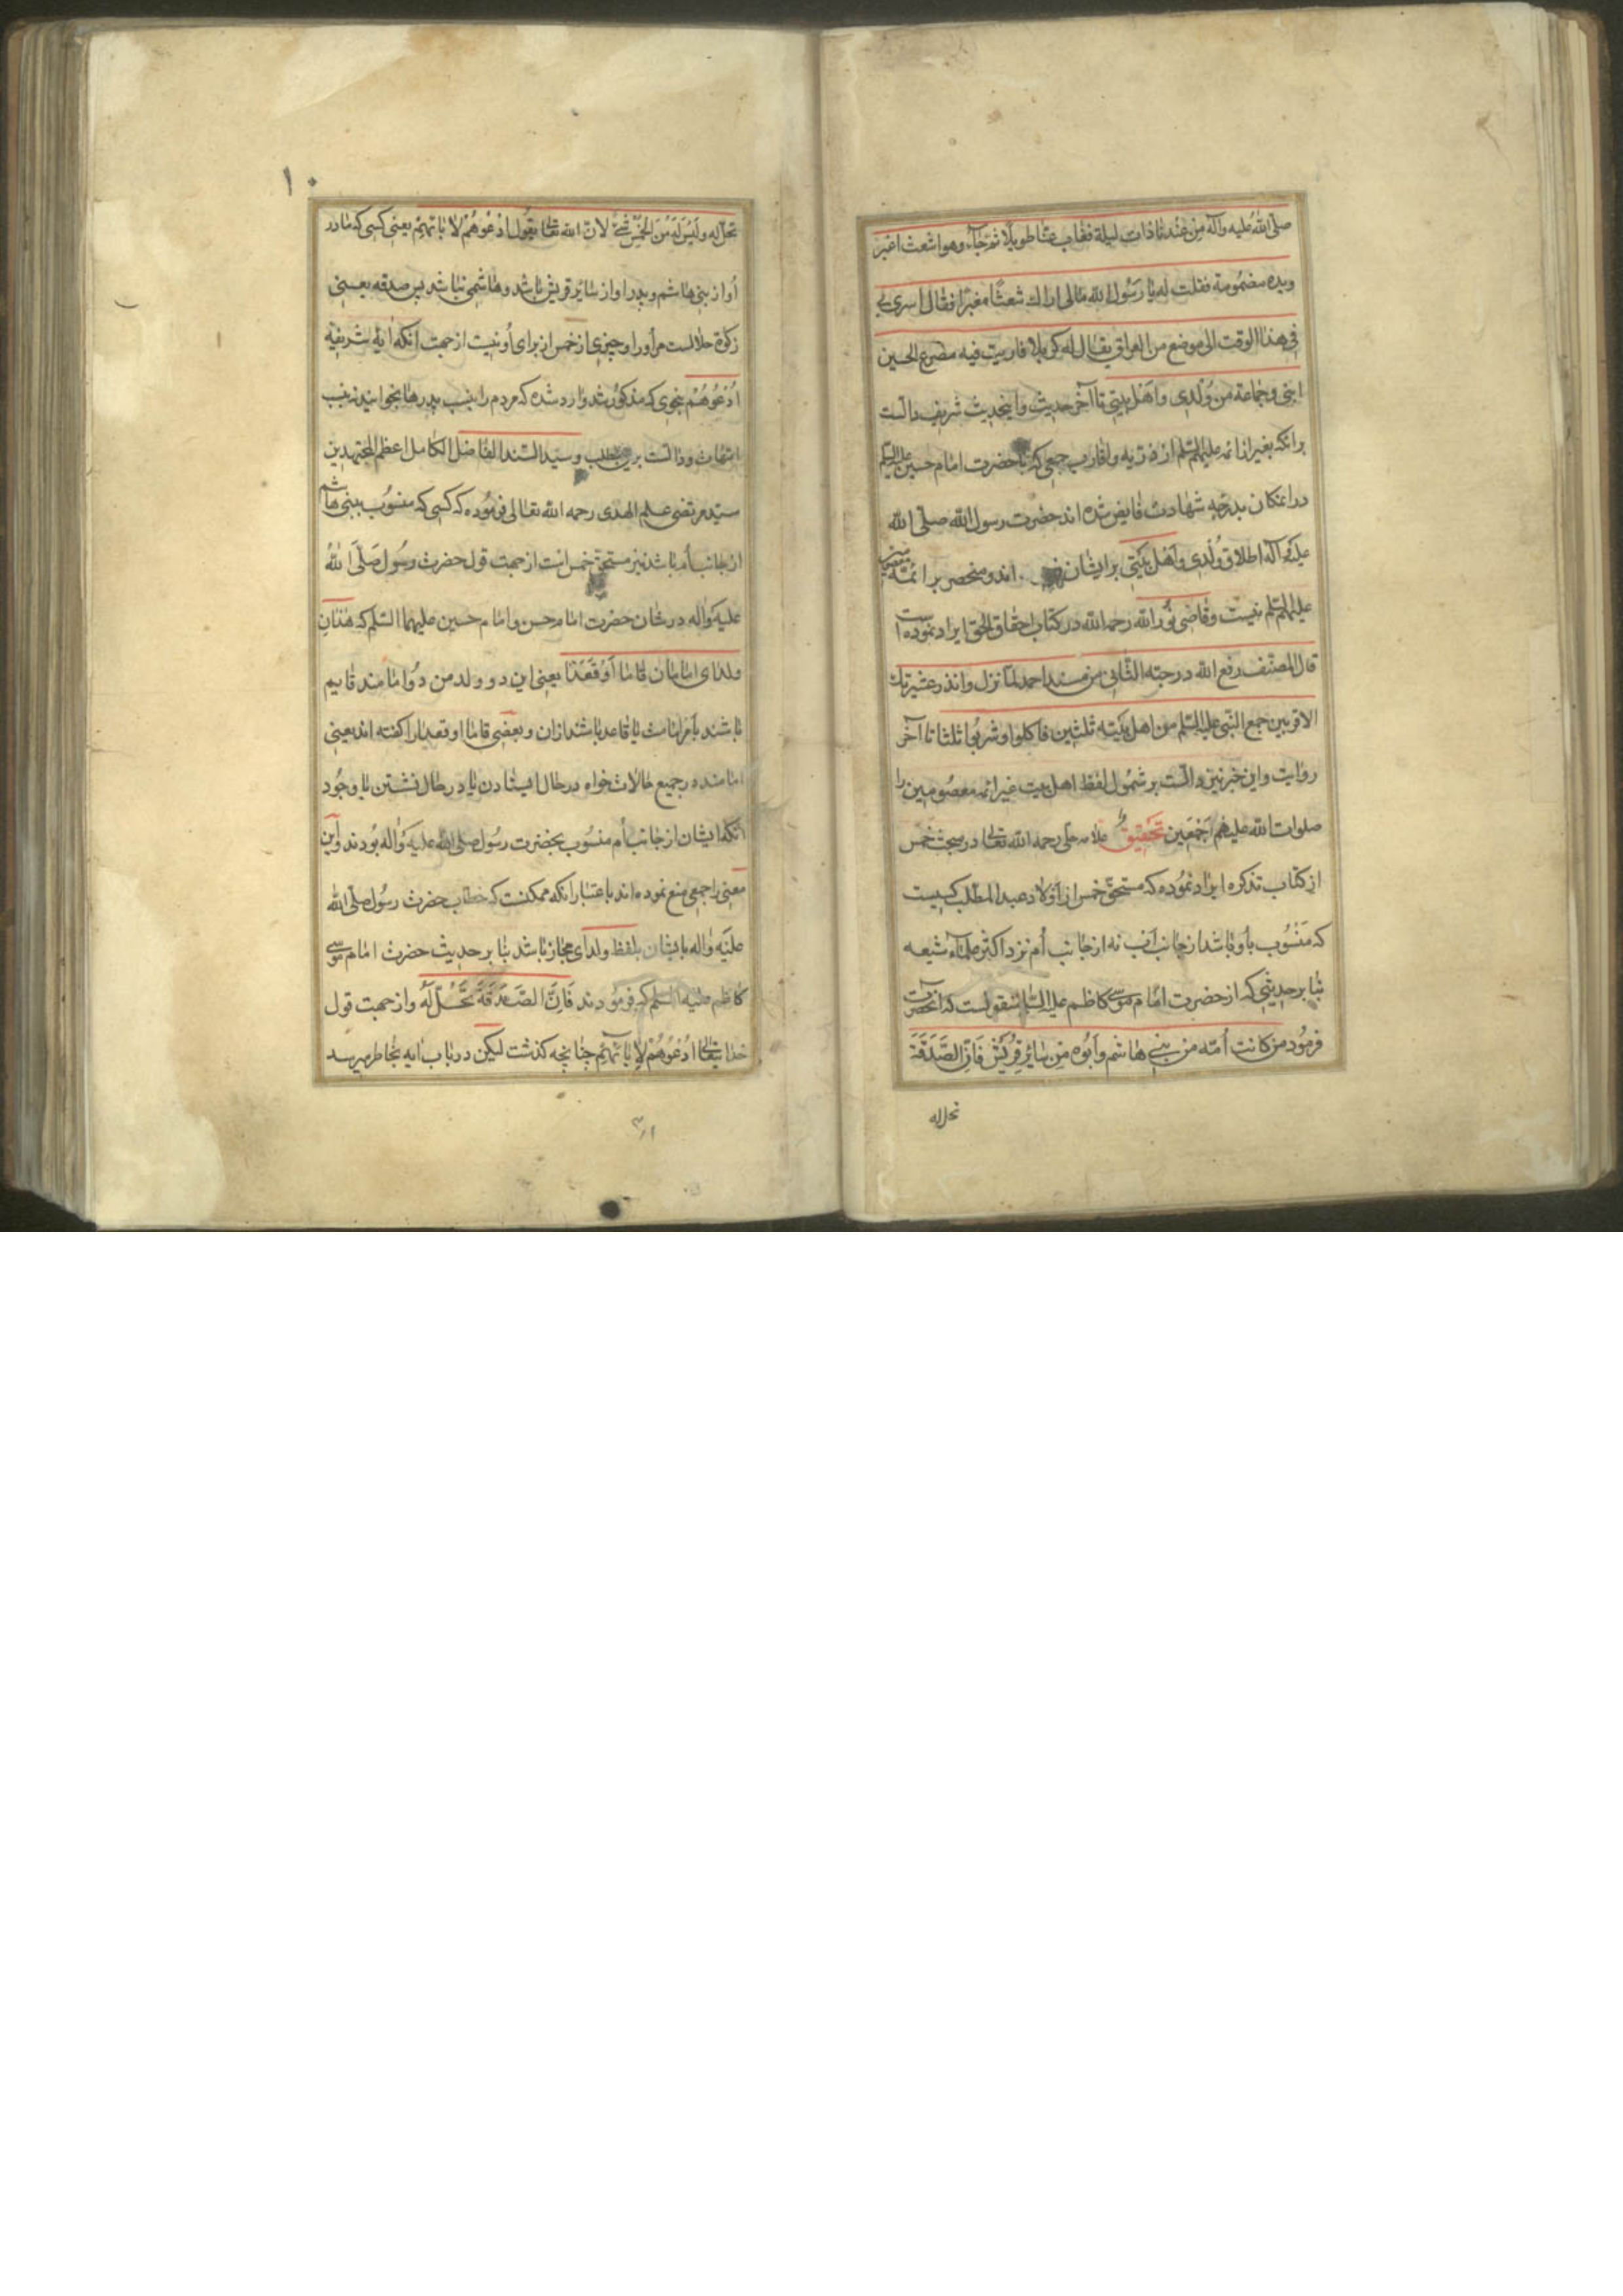 صلّی الله علیه وآله من عندنا ذات لیلة فغاب عنّا طویلا ثمّ جآء وهو اشعث اغبر
ویده مضمومة فقلت له یا رسول الله مالی اراك شعثًا مغبرًا فقال اسری بی
فی هذا الوقت الی موضع من العراق یقال له کربلا فاریت فیه مصرع الحسین
ابنی وجماعة من ولدی واهل بیتی تا آخر حدیث واینحدیث شریف دالّست
برانکه بغیر از ائمه علیهم السّلم از ذریه واقارب جمعی که با حضرت امام حسین علیه السّلم
در انمکان بدرجه شهادت فایض شده اند حضرت رسول الله صلّی الله
علیه وآله اطلاق ولدی واهل بیتی بر ایشان اند ومنحصر بر ائمّه معصومین
علیهم السّلم نیست وقاضی نور الله رحمه الله در کتاب احقاق الحق ایراد نموده است
قال المصنّف رفع الله درجته الثّانی من مسند احمد لمّا نزل وانذر عشیرتك
الاقربین جمع النّبی علیه السّلم من اهل بیته ثلثین فاکلوا وشربوا ثلثا تا آخر
روایت واین خبر نیز دالّست بر شمول لفظ اهل بیت غیر ائمه معصومین را
صلوات الله علیهم اجمعین تحقیق علامه حلی رحمه الله تعالی در مبحث خمس
از کتاب تذکره ایراد نموده که مستحق خمس از اولاد عبد المطلب کسیست
که منسوب باو باشد از جانب اب نه از جانب اُم نزد اکثر علمآء شیعه
بنا بر حدیثی که از حضرت امام موسی کاظم علیه السّلم منقولست که انحضرت
فرمود من کانت اُمّه من بنی هاشم وابوه من سائر قریش فانّ الصّدقة
تحل له
۱۰
تحلّ له ولیس له من الخمس شئ لانّ الله تعالی یقول ادعوهم لابائهم یعنی کسی که مادر
او از بنی هاشم وپدر او از سائر قریش باشد وهاشمی نباشد پس صدقه یعنی
زکوة حلالست مر او را وچیزی از خمس از برای او نیست از جهت انکه ایه شریفه
ادعوهم بنحوی که مذکور شد وارد شده که مردم را بنسب پدرها بخوانید نه بنسب
امّهات ودالّست برین مطلب وسیّد السّند الفاضل الکامل اعظم المجتهدین
سیّد مرتضی علم الهدی رحمه الله تعالی فرموده که کسی که منسوب ببنی هاشم
از جانب اُم باشد نیز مستحق خمس است از جهت قول حضرت رسول صلّی الله
علیه وآله در شان حضرت امام حسن وامام حسین علیهما السّلم که هذان
ولدای امامان قاما او قعدا یعنی این دو ولد من دو امامند قایم
باشند بامر امامت یا قاعد باشند ازان وبعضی قاما او قعدا را کفته اند یعنی
امامند در جمیع حالات خواه در حال ایستادن یا در حال نشستن با وجود
انکه ایشان از جانب اُم منسوب بحضرت رسول صلی الله علیه وآله بودند واین
معنی را جمعی منع نموده اند باعتبار انکه ممکنست که خطاب حضرت رسول صلّی الله
علیه وآله بایشان بلفظ ولدای مجاز باشد بنا بر حدیث حضرت امام موسی
کاظم علیه السّلم که فرمودند فانّ الصّدقة تحلّ له واز جهت قول
خدایتعالی ادعوهم لابائهم چنانچه کذشت لیکن در باب ایه بخاطر میرسد